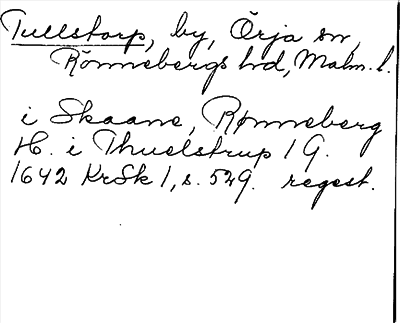 Tullstorp, by, Örja sn,
Rönnebergs hd, Malm. l.
i Skaane, Rønneberg
H. i Thuelstrup 1 G.
1642 KrSk 1, s. 529. regest.